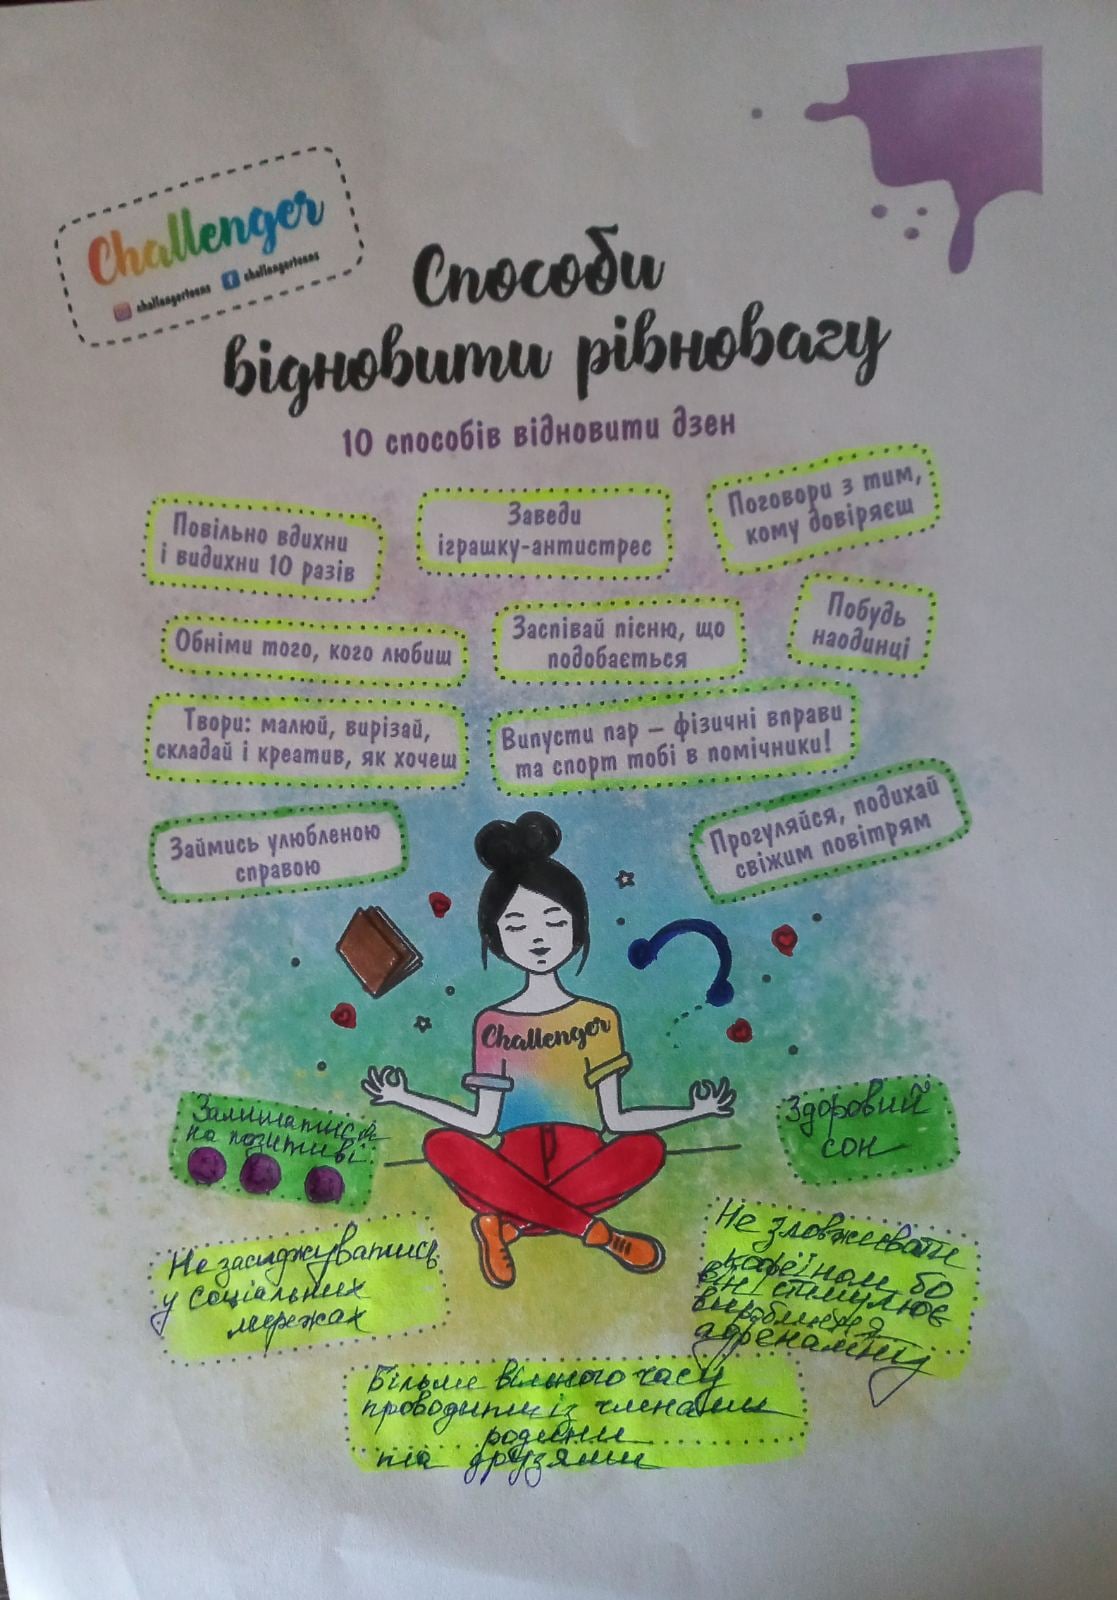 Challenger
challengerteens
challengerteens
Способи
відновити рівновагу
10 способів відновити дзен
Повільно вдихни
і видихни 10 разів
Заведи
іграшку-антистрес
Поговори з тим,
кому довіряєш
Обніми того, кого любиш
Заспівай пісню, що
подобається
Побудь
наодинці
Твори: малюй, вирізай,
складай і креатив, як хочеш
Випусти пар – фізичні вправи
та спорт тобі в помічники!
Займись улюбленою
справою
Прогуляйся, подихай
свіжим повітрям
Challenger
Залишатись
на позитиві
Здоровий
сон
Не засиджуватись
у соціальних
мережах
Не зловживати
кофеїном бо
він стимулює
вироблення
адреналіну
Більше вільного часу
проводити із членами
родини
та друзями